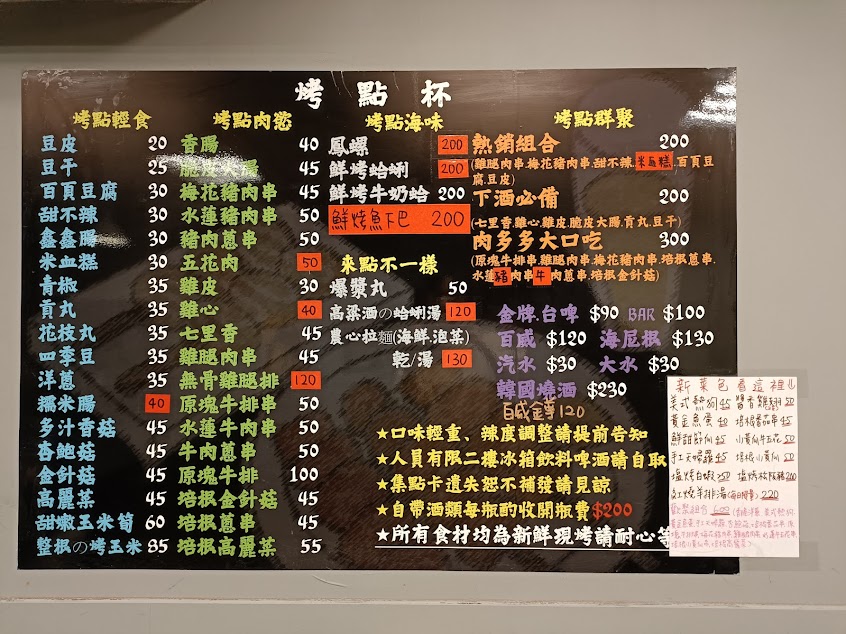 烤點杯
烤點輕食
豆皮 20
豆干 25
百頁豆腐 30
甜不辣 30
鑫鑫腸 30
米血糕 30
青椒 35
貢丸 35
花枝丸 35
四季豆 35
洋蔥 35
糯米腸 40
多汁香菇 45
杏鮑菇 45
金針菇 45
高麗菜 45
甜嫩玉米筍 60
整根の烤玉米 85
烤點肉慾
香腸 40
脆皮大腸 45
梅花豬肉串 45
水蓮豬肉串 50
豬肉蔥串 50
五花肉 50
雞皮 30
雞心 40
七里香 45
雞腿肉串 45
無骨雞腿排 120
原塊牛排串 50
水蓮牛肉串 50
牛肉蔥串 50
原塊牛排 100
培根金針菇 45
培根蔥串 45
培根高麗菜 55
烤點海味
鳳螺 200
鮮烤蛤蜊 200
鮮烤牛奶蛤 200
鮮烤魚下巴 200
來點不一樣
爆漿丸 50
高粱酒の蛤蜊湯 120
農心拉麵(海鮮.泡菜)
乾/湯 130
烤點群聚
熱銷組合 200
(雞腿肉串.梅花豬肉串.甜不辣.米血糕.百頁豆
腐.豆皮)
下酒必備 200
(七里香.雞心.雞皮.脆皮大腸.貢丸.豆干)
肉多多大口吃 300
(原塊牛排串.雞腿肉串.梅花豬肉串.培根蔥串.
水蓮豬肉串.牛肉蔥串.培根金針菇)
金牌.台啤 $90 BAR $100
百威 $120 海尼根 $130
汽水 $30 大水 $30
韓國燒酒 $230
120
★口味輕重、辣度調整請提前告知
★人員有限二樓冰箱飲料啤酒請自取
★集點卡遺失恕不補發請見諒
★自帶酒類每瓶酌收開瓶費$200
★所有食材均為新鮮現烤請耐心等
新菜色看這裡
美式熱狗 45 醬香雞翅 50
黃金魚蛋 40 培根番茄串 45
鮮甜節瓜 45 小黃瓜牛五花 50
手工天婦羅 45 培根小黃瓜 50
塩烤白蝦 250 塩烤松阪豬 200
紅燒羊排湯(每日限量) 220
歡聚組合 600